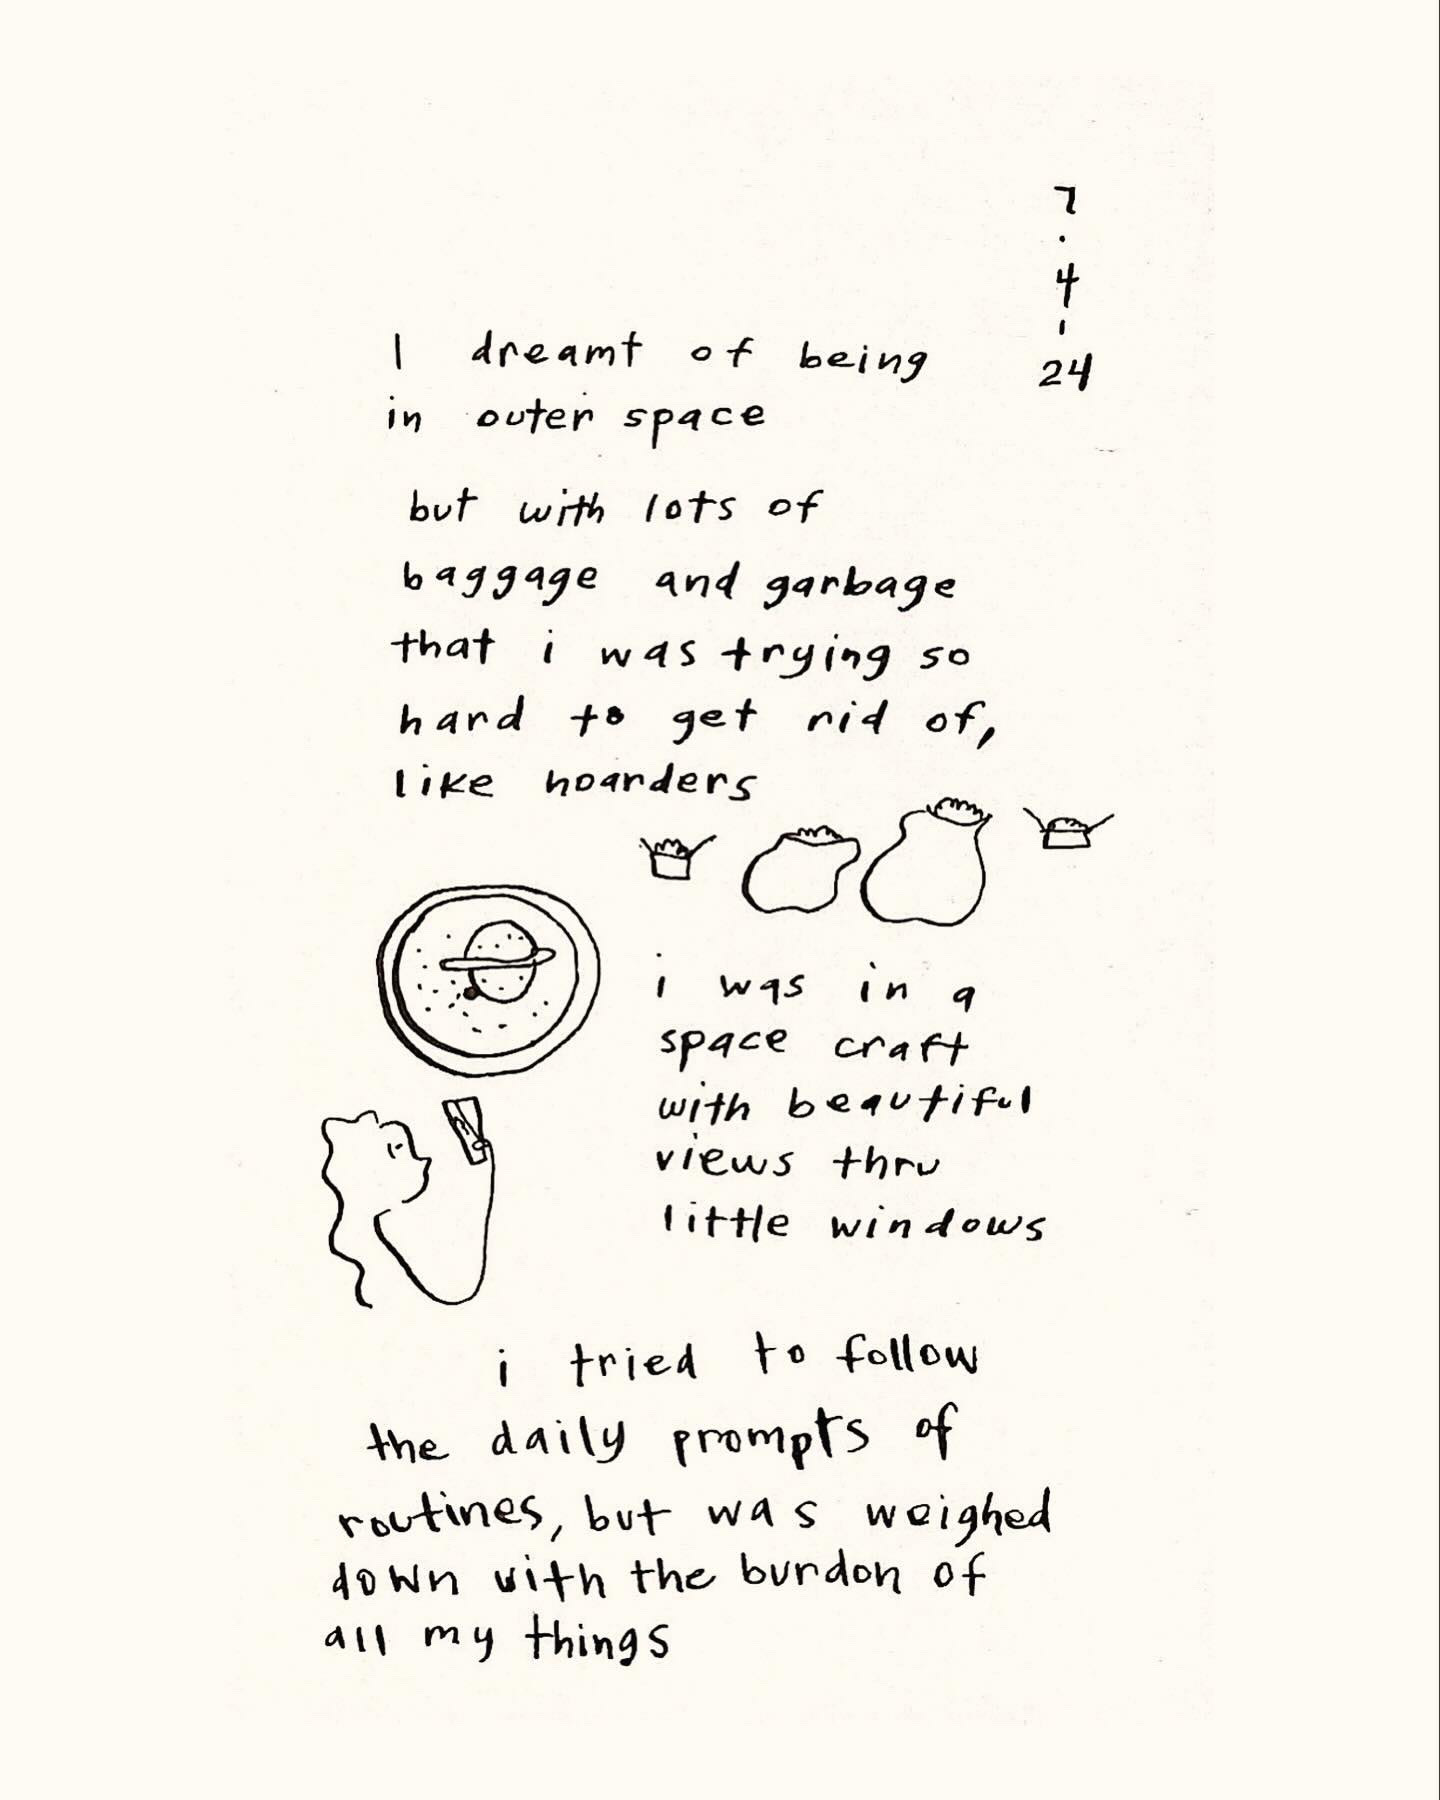 7
.
4
.
24
I dreamt of being
in outer space
but with lots of
baggage and garbage
that i was trying so
hard to get rid of,
like hoarders
i was in a
space craft
with beautiful
views thru
little windows
i tried to follow
the daily prompts of
routines, but was weighed
down with the burdon of
all my things